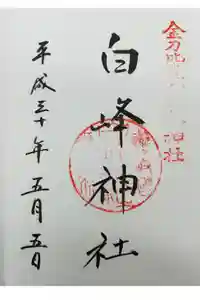 金刀比
神社
白峰神社
平成三十年五月五日